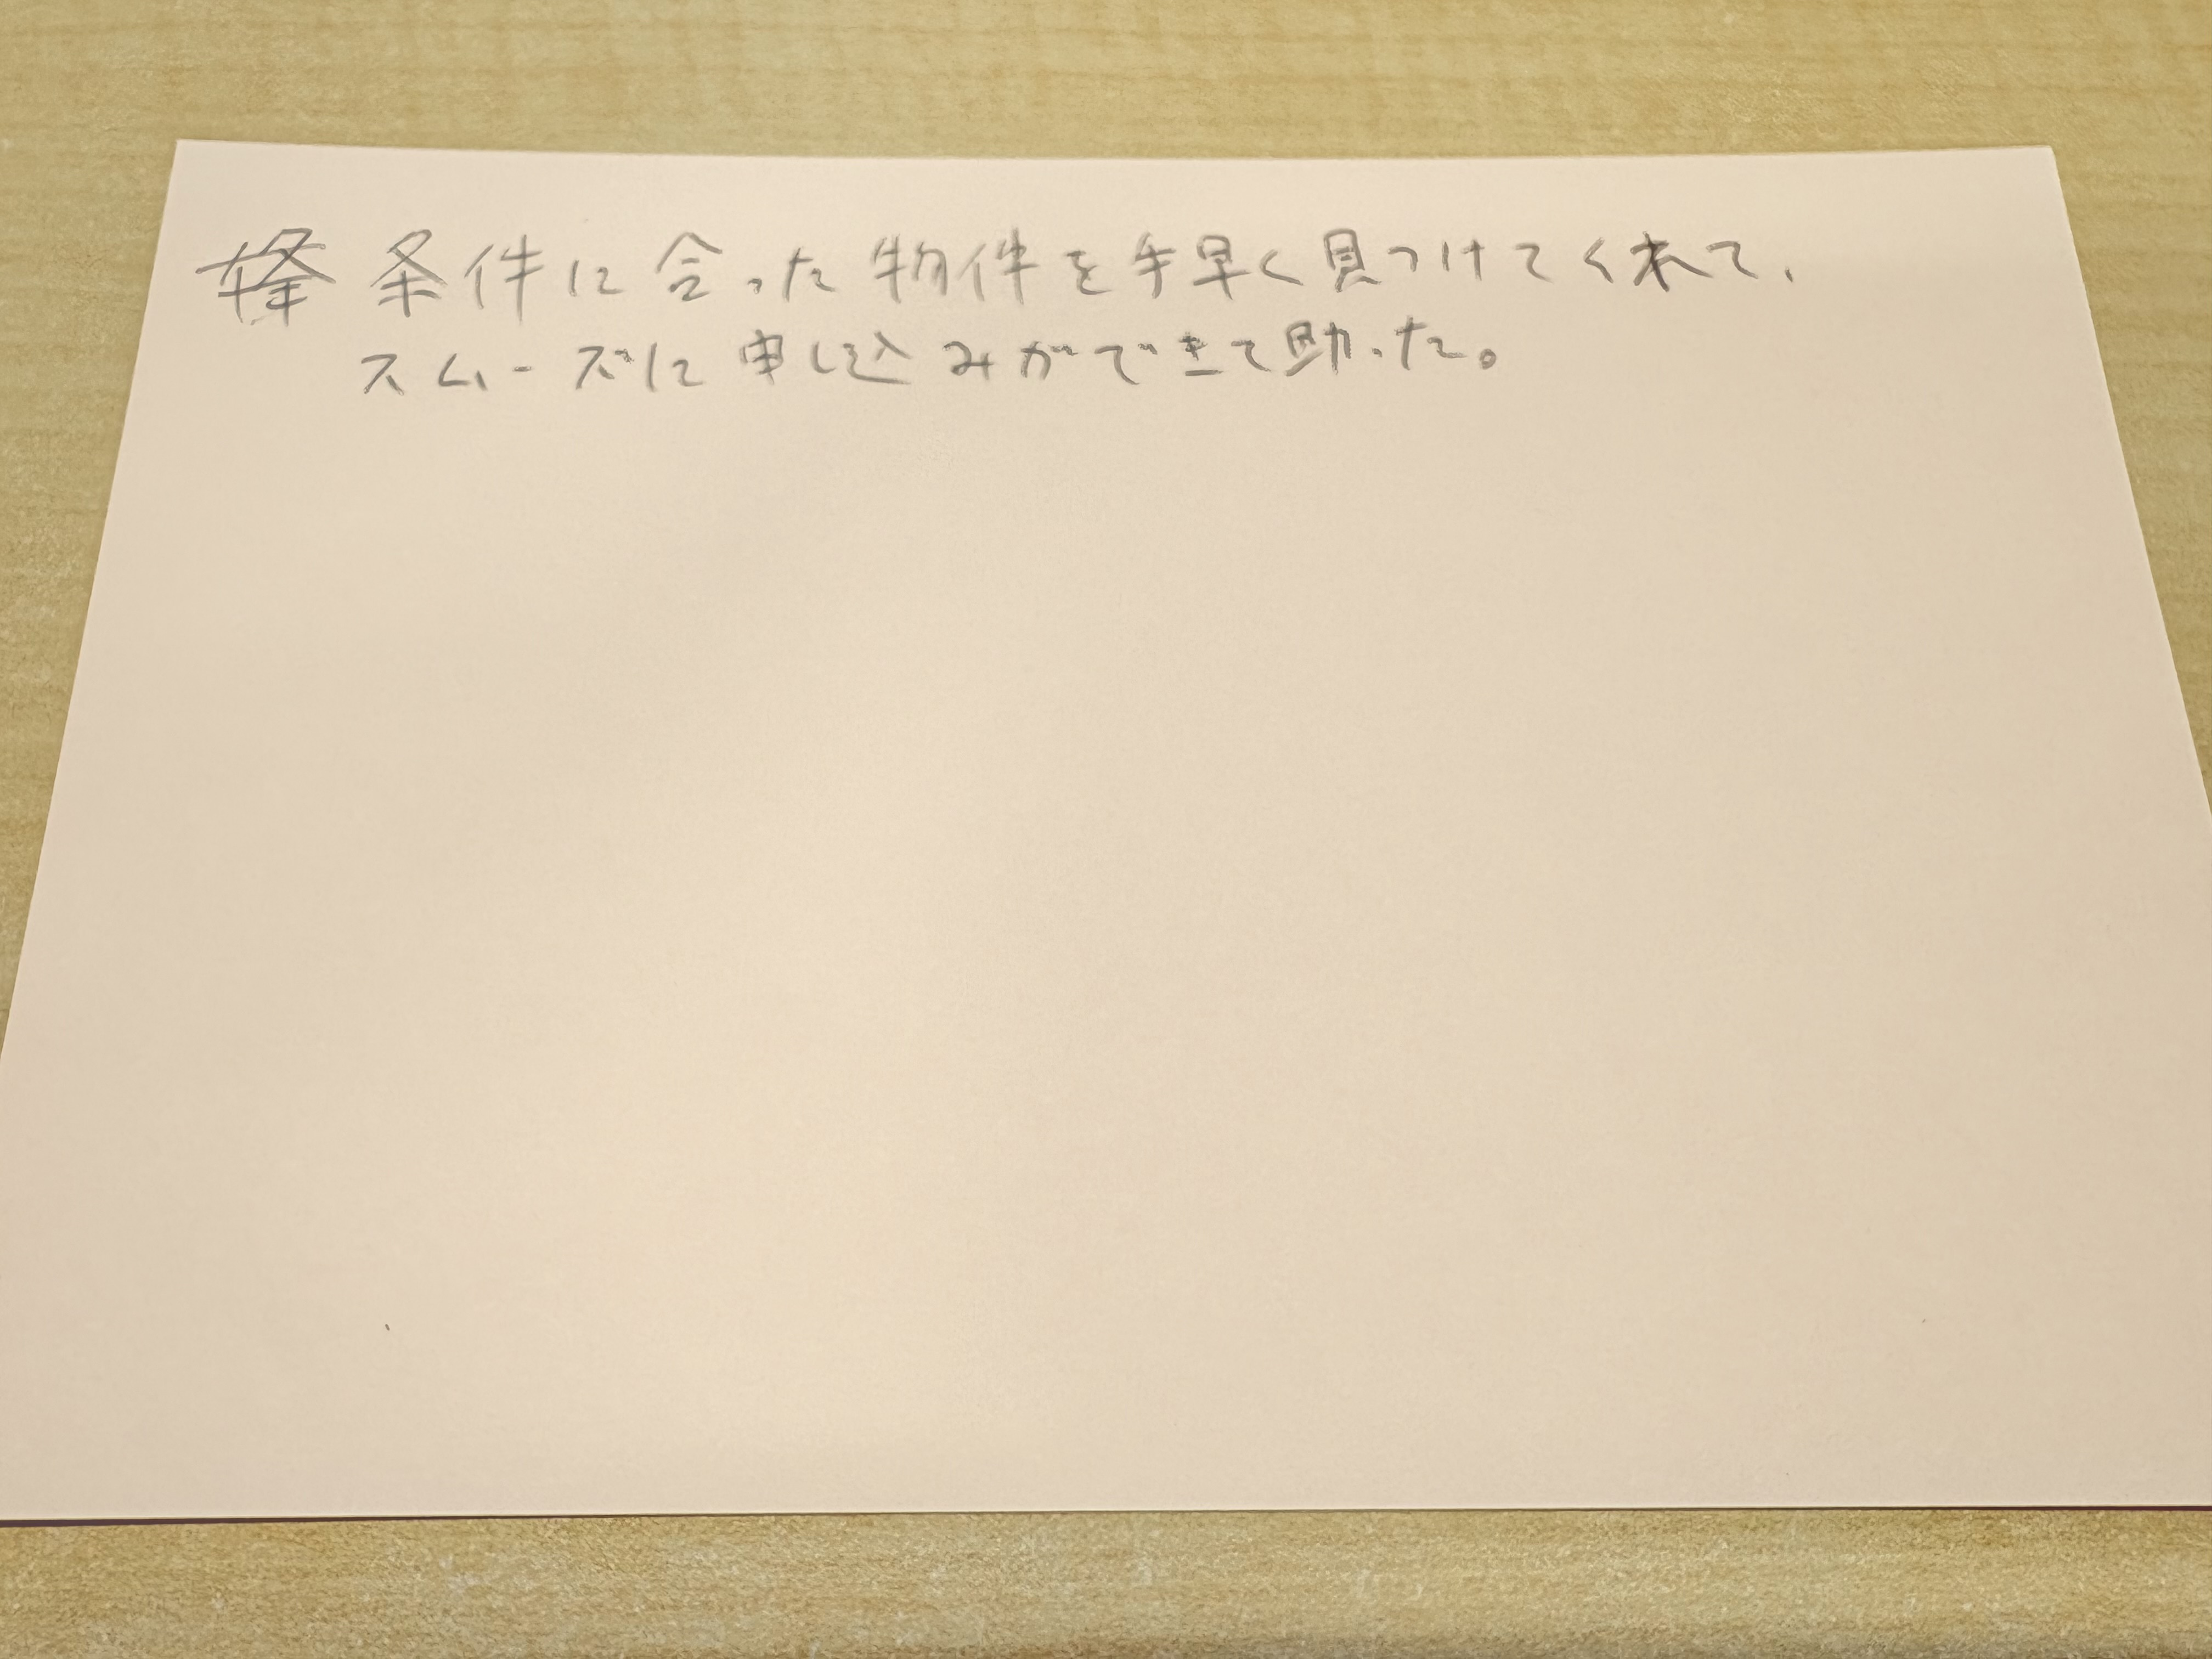 条件に合った物件を手早く見つけてくれて、
スムーズに申し込みができて助った。